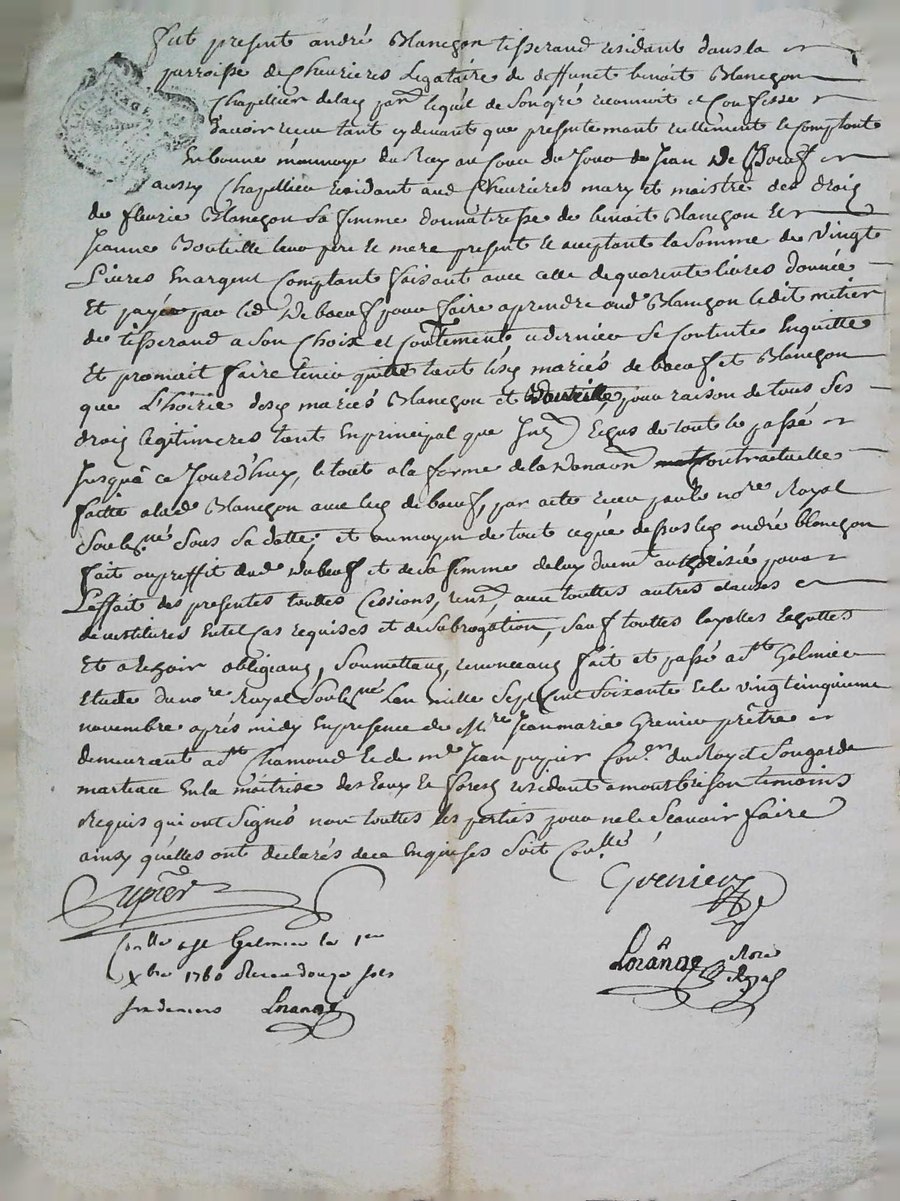 fut present andré Blançon tisserand résidant dans la
parroisse de Chevrieres Legataire de deffunct benoit Blançon
Chapellier delad parse lequel de son gré reconnoit et Confesse
d'avoir receu tant cy devant que presentemant reellement le comptant
En bonne monnoye du Roy au cour du Jour de Jean De Boeuf
aussy Chapellier résidant aud Chevrieres mary et maistre des droits
de fleurie Blançon sa femme donnâtresse de benoit Blançon et
Jeanne Bouteille leur pere et mere present et aceptant la Somme de vingt
Livres En argent Comptant faisant avec celle de quarente livres donnée
Et payée par led Deboeuf pour faire aprendre aud Blançon ledit métier
de tisserand a son Choix et Conttement, ce dernier se Contente Enquitte
Et promait faire tenir quitte tant lesd mariés de boeuf et Blançon
que L'hoirie desd mariés Blançon et Bouteille, pour raison de tous ses
droits légitimeres tant En principal que Jnts Echus de tout le passé
Jusqu'a ce Jourd'huy, le tout a la forme de la Donaon Contractuelle
faitte alad Blançon avec led de boeuf, par acte receu par le nore Royal
Soulsné Sous Sa datte, et au moyin de tout ceque dessus led andré blançon
fait au proffit dud Deboeuf et de sa femme deluy duemt authorisée pour
L'effait des presentes touttes Cessions, rents, avec touttes autres clauses
devestitures En tel Cas requises et de subrogation, sauf touttes layalles Exceptés
Et a leavoir obligeans, soumettans, renonceans fait et passé a St Galmier
Etude du nore Royal Soulsné L'an mille Sept Cent Soixante Et le vingt cinquieme
novembre après midy En presence de Mre Jean marie Grenier prêtre
demeurant a St Chamond Et de me Jean pupier Coner du Roy et Son garde
marteau En la maîtrise des Eaux Et forets residant a montbrison temoins
Requis qui ont Signés non touttes les parties pour ne le Scavoir faire
ainsy qu'elles ont déclarés de ce Enquises Soit Conllé
Pupier
Grenier
Conllé a St Galmier le 1er
Xbre 1760 Receu douze sols
six deniers Loranae
Loranae Nore
Royal